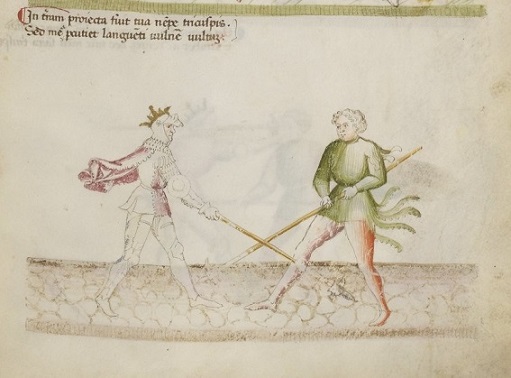 In tr̄am proiecta fuit tua nēpe tricuspis.
Sed me᷒ patiet langueti uulnē uultuʒ.